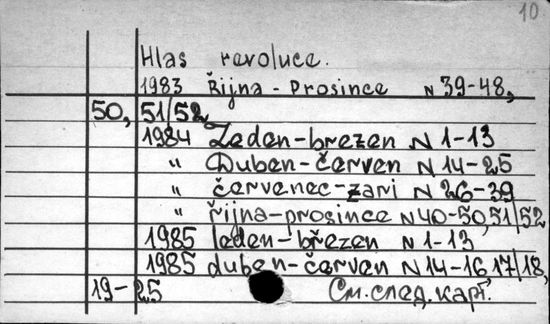 10
Hlas revoluce.
1983 Řijna - Prosince N 39-48,
50, 51/52
1984 Leden-březen N 1-13
" Duben-červen N 14-25
" červenec-zari N 26-39
" řijna-prosince N 40-50, 51/52
1985 leden-březen N 1-13
1985 duben-červen N 14-16 17/18,
19-25 См. след. карт.